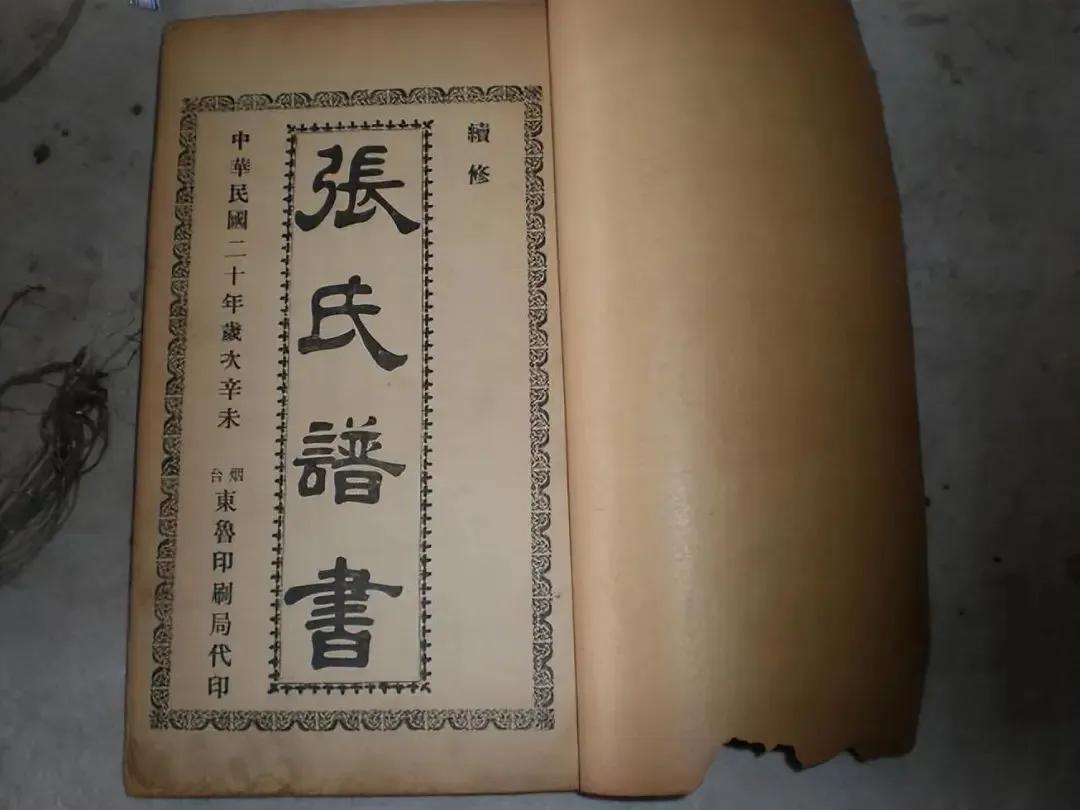 續修
張氏譜書
中華民國二十年歲次辛未
烟台
東魯印刷局代印